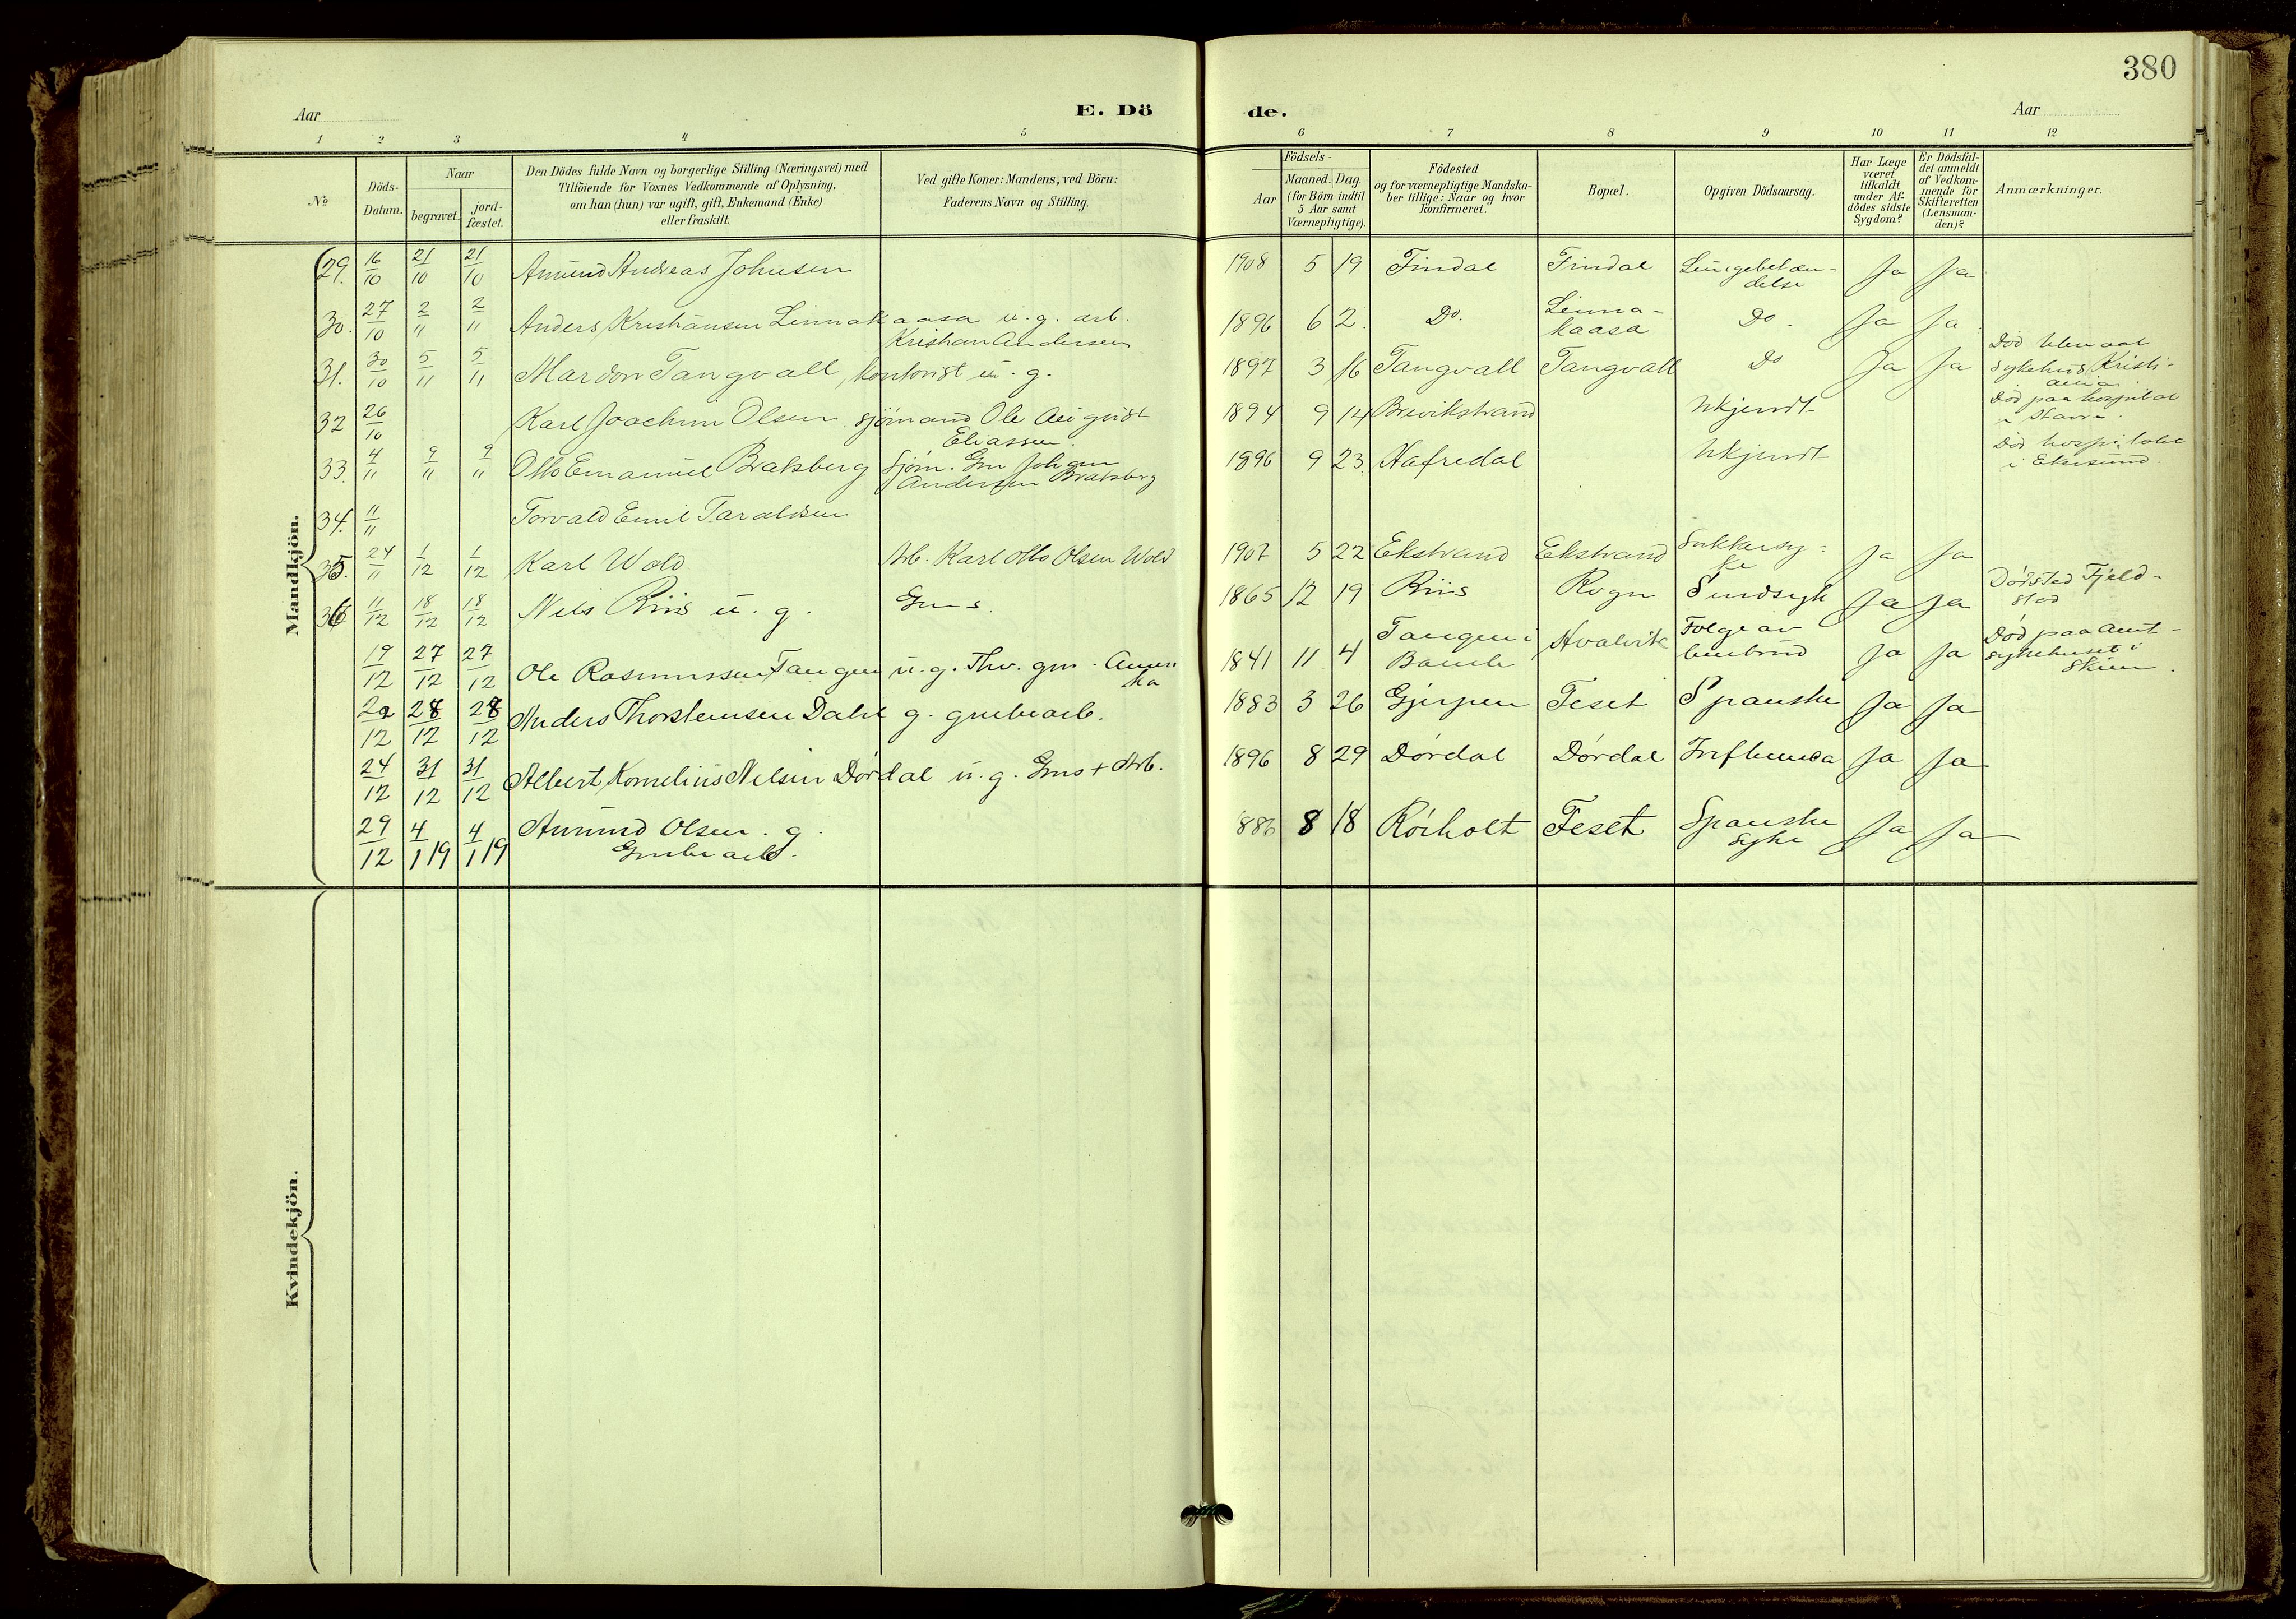 380
Aar
E. Dö
de.
Aar
1 2 3 4 5 6 7 8 9 10 11 12
№
Döds-
Datum.
Naar
begravet.
jord-
fæstet.
Den Dödes fulde Navn og borgerlige Stilling (Næringsvei) med
Tilföiende for Voxnes Vedkommende af Oplysning,
om han (hun) var ugift, gift, Enkemand (Enke)
eller fraskilt.
Ved gifte Koner: Mandens, ved Börn:
Faderens Navn og Stilling.
Födsels-
Aar
Maaned. Dag.
(for Börn indtil
5 Aar samt
Værnepligtige).
Födested
og for værnepligtige Mandska-
ber tillige: Naar og hvor
konfirmeret.
Bopæl.
Opgiven Dödsaarsag.
Har Læge
været
tilkaldt
under Af-
dödes sidste
Sygdom?
Er Dödsfal-
det anmeldt
af Vedkom-
mende for
Skifteretten
(Lensman-
den)?
Anmærkninger.
Mandkjön.
29. 16/10 21/10 21/10 Amund Andreas Johnsen 1908 5 19 Findal Findal Lungebetæn-
delse Ja Ja
30. 27/10 2/11 2/11 Anders Kristiansen Linnakaasa u. g. arb.
Kristian Andersen 1896 6 2. Do. Linna-
kaasa Do. Ja Ja
31. 30/10 5/11 5/11 Mardon Tangvall, kontorist u. g. 1897 3 16 Tangvall Tangvall Do Ja Ja Død Ullevaal
sykehus Kristi-
ania
32 26/10 Karl Joachim Olsen sjømand Ole August
Eliassen. 1894 9 14 Brevikstrand Ukjendt Død paa hospital
i
33. 4/11 9/11 9/11 Otto Emanuel Bratsberg Sjøm. Gm Johan
Andersen Bratsberg 1896 9 23. Hafredal Ukjendt Død hospitalet
i Ekersund.
34. 11/11 Torvald Emil Taraldsen
35. 24/11 1/12 1/12 Karl Wold Arb. Karl Otto Olsen Wold 1907 5 22 Ekstrand Ekstrand Sukkersy-
ke Ja Ja
36 11/12 18/12 18/12 Nils Riis u. g. Gms. 1865 12 19 Riis Rogn Sindsyk Ja Ja Dødsted Fjeld-
stad
19/12 27/12 27/12 Ole Rasmussen Tangen u. g. Thv. gm. Ameri
ka 1841 11 4 Tangen i
Bamle Hvalvik Følge av
benbrud Ja Ja Død paa Amt-
sykehuset i
Skien.
22/12 28/12 28/12 Anders Thorstensen Dahl g. grubearb. 1883 3 26 Gjerpen Feset Spanske Ja Ja
24/12 31/12 31/12 Albert Kornelius Nelsen Dørdal u. g. Gms + Arb. 1896 8 29 Dørdal Dørdal Influenca Ja Ja
29/12 4/1 19 4/1 19 Amund Olsen. g.
Grubearb. 886 8 18 Rörholt Feset Spanske
syke Ja Ja
Kvindekjön.